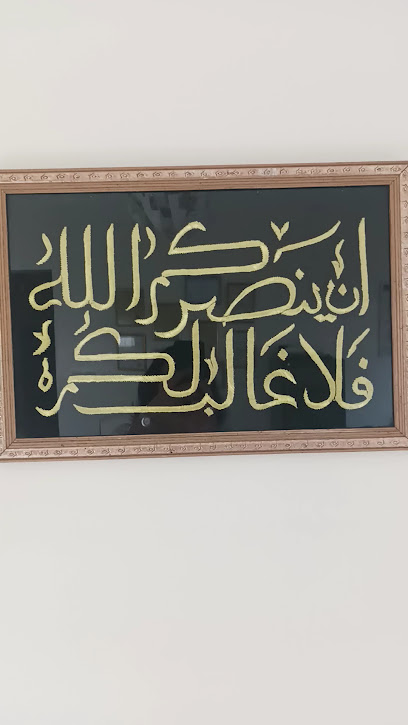 ان ينصركم اللهُ
فَلا غَالبَ لَكُم